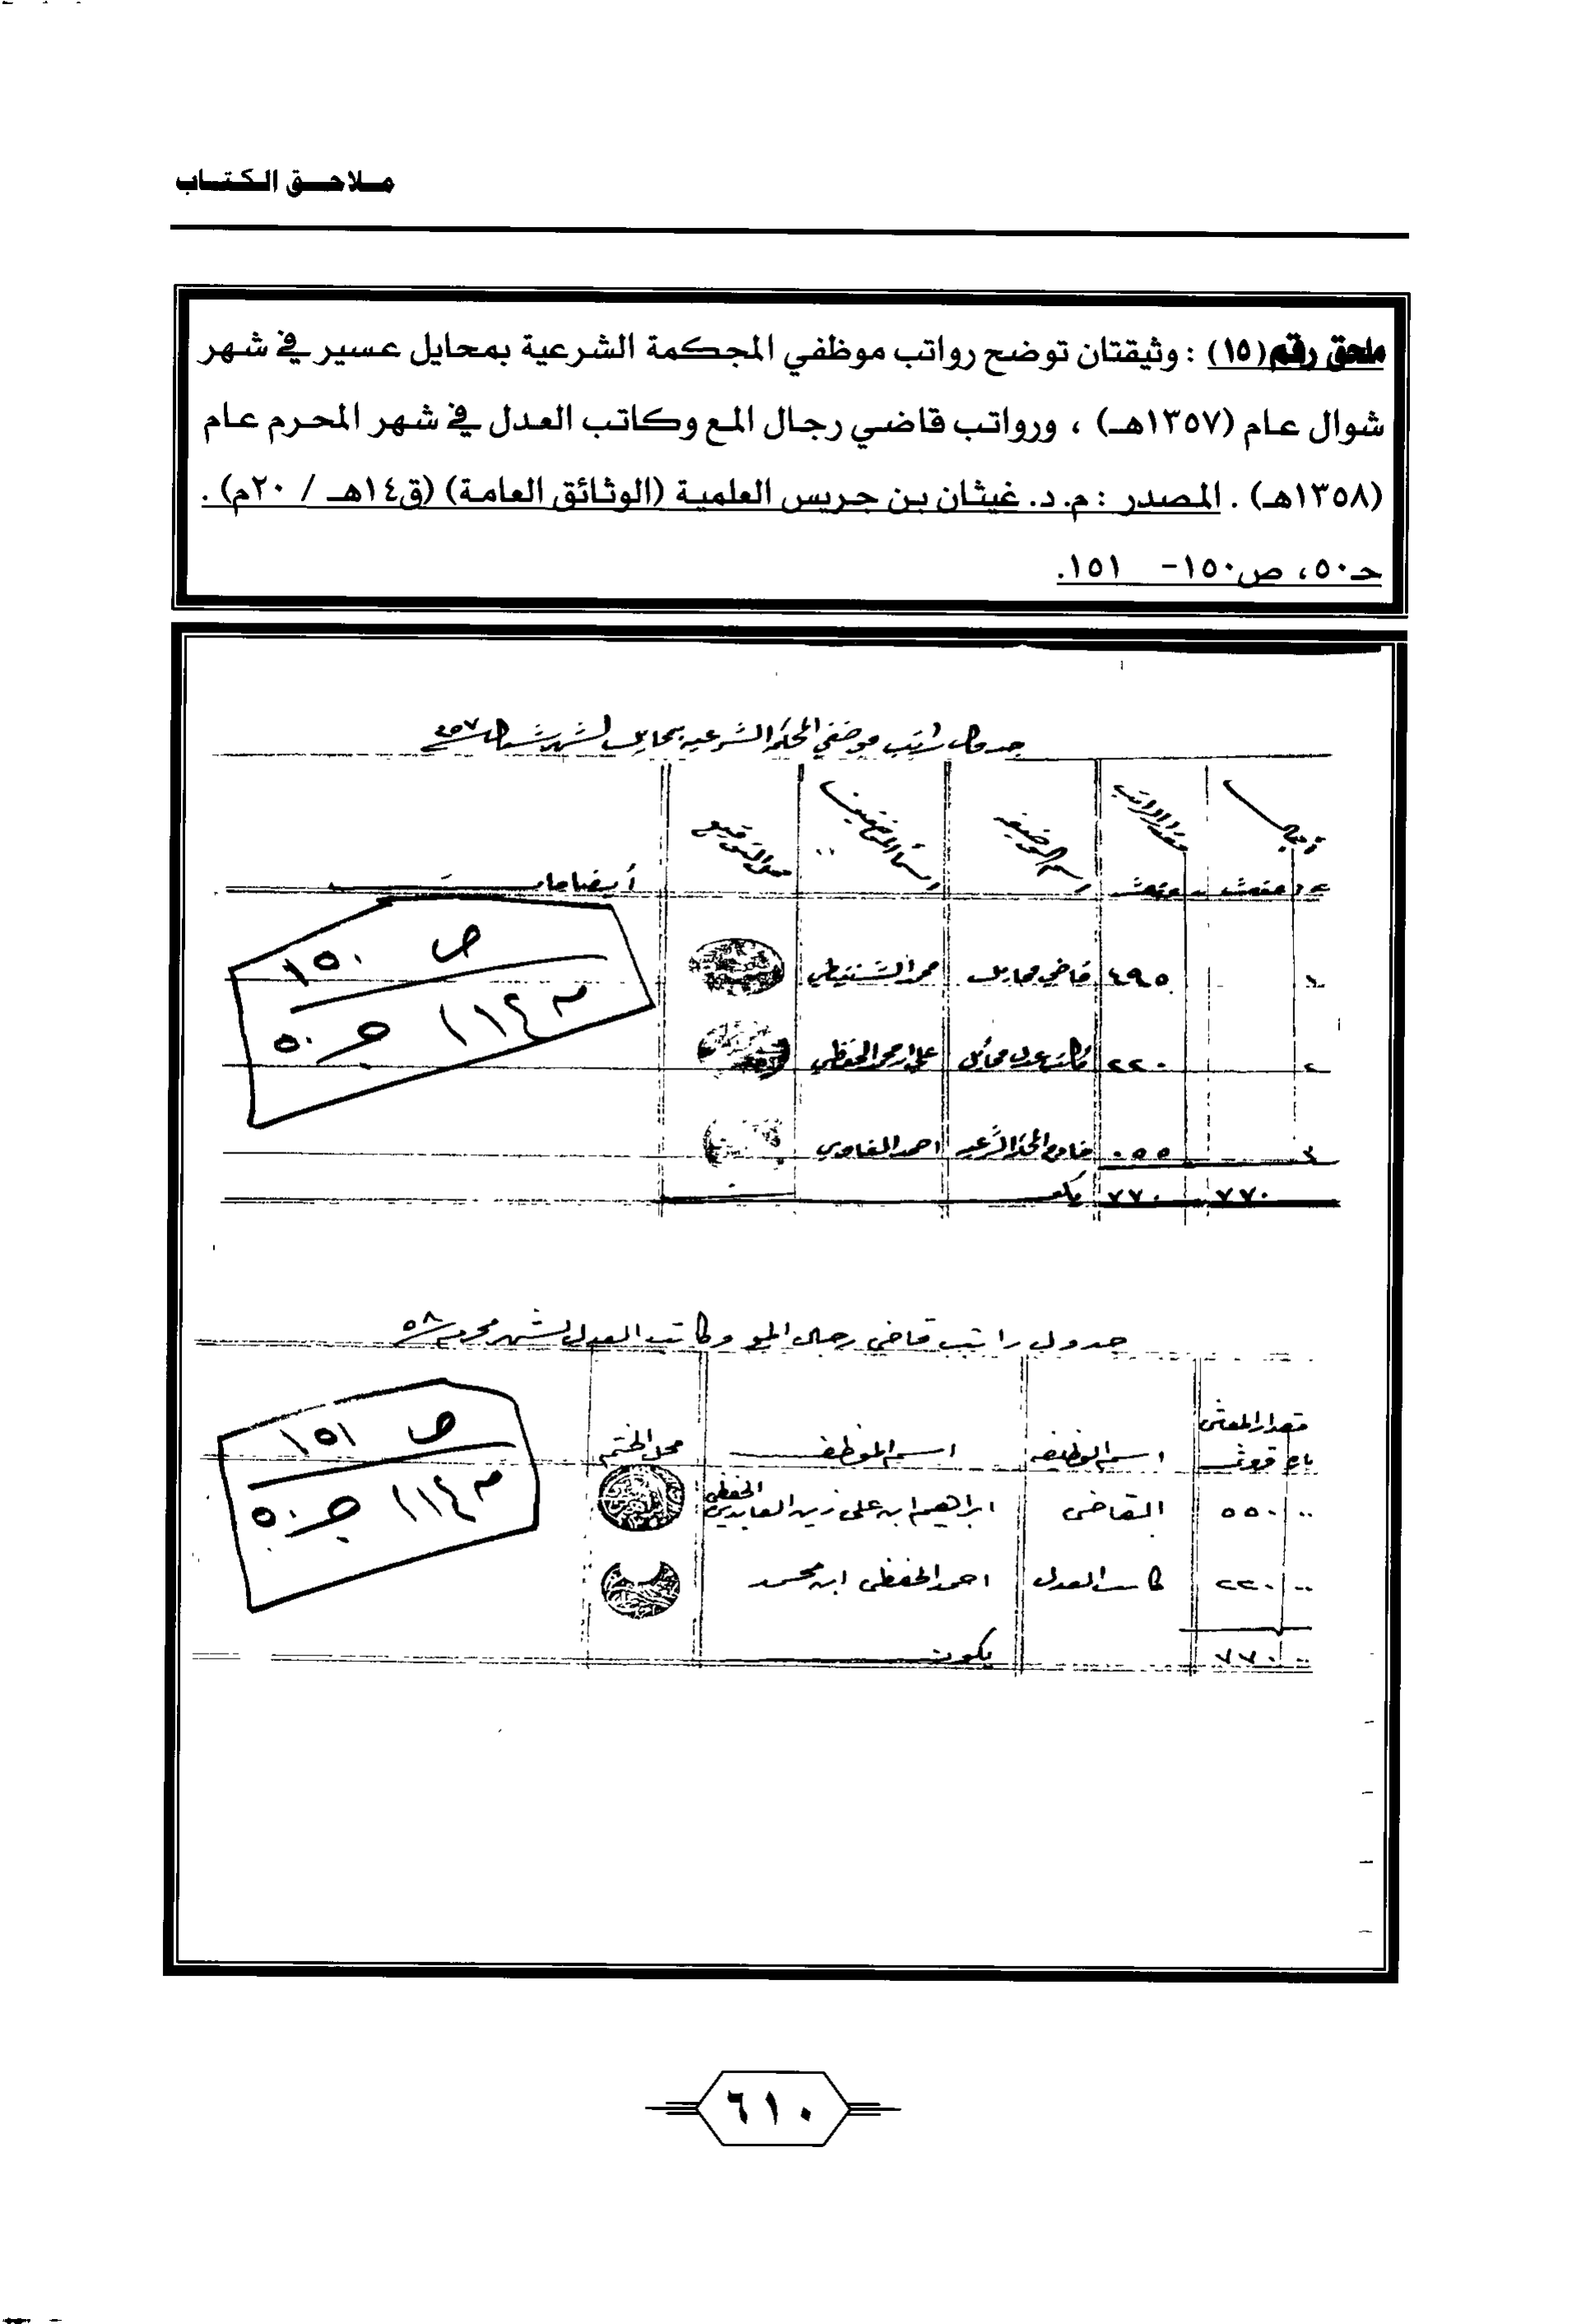 ملاحق الكتاب
ملحق رقم (١٥) : وثيقتان توضح رواتب موظفي المجكمة الشرعية بمحايل عسير في شهر
شوال عام (١٣٥٧هـ) ، ورواتب قاضي رجال المع وكاتب العدل في شهر المحرم عام
(١٣٥٨هـ) . المصدر : م. د. غيثان بن جريس العلمية (الوثائق العامة) (ق١٤هـ / ٢٠م) .
حـ٥٠، ص١٥٠- ١٥١.
جدول راتب موضفي المحكمة الشرعيه بمحايل لشهر شوال ٣٥٧
مقدار الراتب
اسم الوضيفه
محل التوقيع
أيضاحات
ص ١٥٠
م ١١٤ جـ ٥٠
٤٩٥ قاضي محايل محمد الشنقيطي
٢ ٢٢٠ كاتب عدل محائل علي ابن محمد الحفظي
٣ ٠٥٥ خادم المحكمة الشرعيه احمد
٧٧٠ ٧٧٠ يكون
جدول راتب قاضي رجال المع وكاتب العدل لشهر محرم ٥٨
مقدار المعاش
باره قروش اسم الوظيفه اسم الموظف محل الختم
ص ١٥١
م ١١٤ جـ ٥٠
٠٠ ٥٥٠ القاضي ابراهيم ابن علي زين العابدين الحفظي
٠٠ ٢٢٠ كاتب العدل احمد الحفظي ابن محمد
٠٠ ٧٧٠ يكون
٦١٠